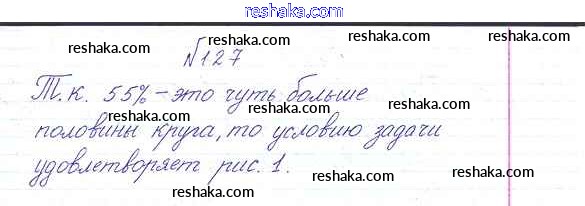 reshaka.com
reshaka.com reshaka.com reshaka.com
№127
Т.к. 55% – это чуть больше
reshaka.com reshaka.com reshaka.com
половины круга, то условию задачи
reshaka.com reshaka.com
удовлетворяет рис. 1.
reshaka.com reshaka.com reshaka.com